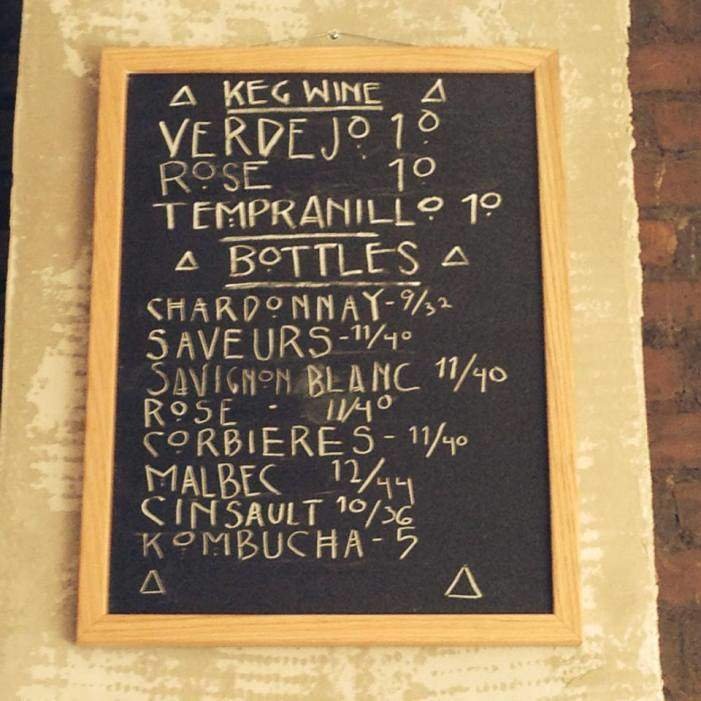 KEG WINE
VERDEJO 10
ROSE 10
TEMPRANILLO 10
BOTTLES
CHARDONNAY-9/32
SAVEURS-11/40
SAVIGNON BLANC 11/40
ROSE - 11/40
CORBIERES-11/40
MALBEC 12/44
CINSAULT 10/36
KOMBUCHA-5